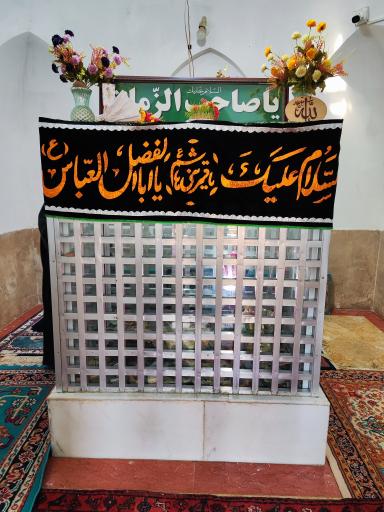 السلام علیک
یا صاحب الزمان
سلام علیک یا قمر بنی هاشم یا ابا الفضل العباس (ع)